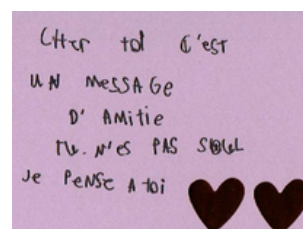 CHer toi C'est
UN MessAGe
D' AMiTie
TU. N'es PAS SEUL
Je PeNSe A toi